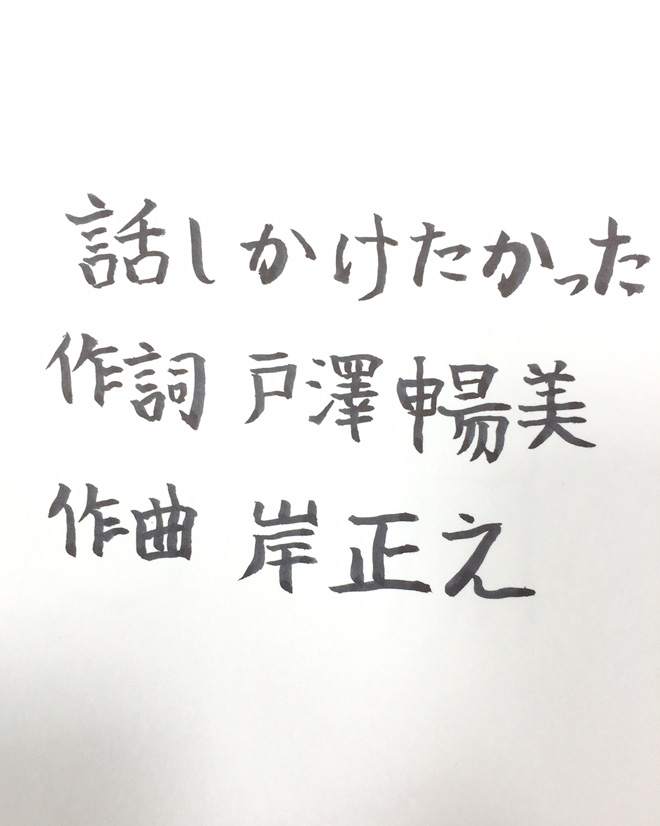 話しかけたかった
作詞 戸澤暢美
作曲 岸正之